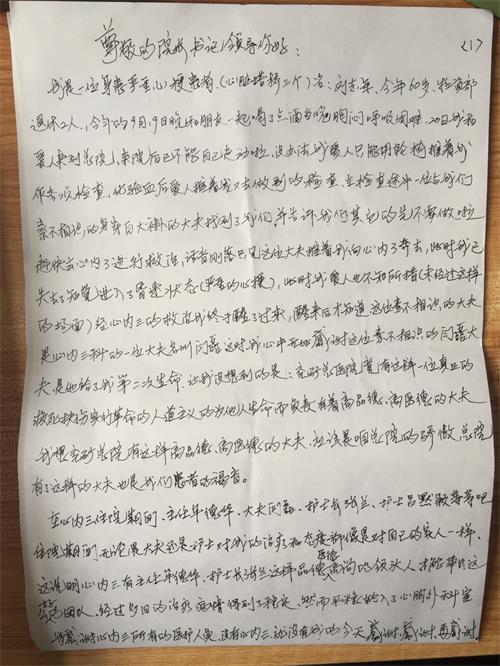 尊敬的院长书记领导你好： (1)
我是一位身患严重心梗患者、(心脏搭桥三个)名：刘志年、今年60岁、物资部
退休工人，今年的9月19日晚和朋友一起喝了点酒当晚胸闷呼吸困难、20日我和
爱人来到总院，来院后已不能自己走动啦，没办法我爱人只能用轮椅推着我
作各项检查，化验血后爱人推着我又去做别的检查、在检查途中一位与我们
素不相识的身穿白大褂的大夫找到了我们，并告诉我们其它的先不要做啦
赶快去心内三进行救治，话音刚落只见这位大夫推着我向心内三奔去，此时我已
失去了知觉进入了昏迷状态(严重的心梗)，此时我爱人也不知所措(未经过这样
的场面)经心内三的救治我终于醒了过来，醒来后才知道这位素不相识的大夫
是心内三科的一位大夫名叫闫磊这时我心中无比感谢这位素不相识的闫磊大
夫、是他给了我第二次生命、让我没想到的是：兖矿总医院竟有这样一位真正的
救死扶伤实行革命的人道主义的为他人生命而负责有着高品德、高医德的大夫
我想兖矿总院有这样高品德、高医德的大夫、应该是咱总院的骄傲、总院
有了这样的大夫也是我们患者的福音。
在心内三住院期间、主任年德华、大夫闫磊、护士长张兰、护士吕默颖等等吧
住院期间无论是大夫还是护士对我的治疗和态度都像是对自己的家人一样、
这说明心内三有主任年德华、护士长张兰这样品德医德高尚的领头人才能带出这
样的团队、经过多日的治疗病情得到了稳定、然而平稳的转入了心胸外科室
我感谢心内三所有的医护人员、没有心内三就没有我的今天感谢、感谢、再感谢、